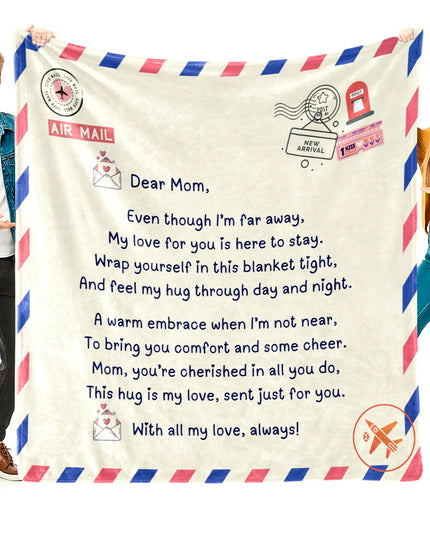 AIR MAIL
POST
POST
NEW
ARRIVAL
1 KISS
Dear Mom,
Even though I'm far away,
My love for you is here to stay.
Wrap yourself in this blanket tight,
And feel my hug through day and night.
A warm embrace when I'm not near,
To bring you comfort and some cheer.
Mom, you're cherished in all you do,
This hug is my love, sent just for you.
With all my love, always!